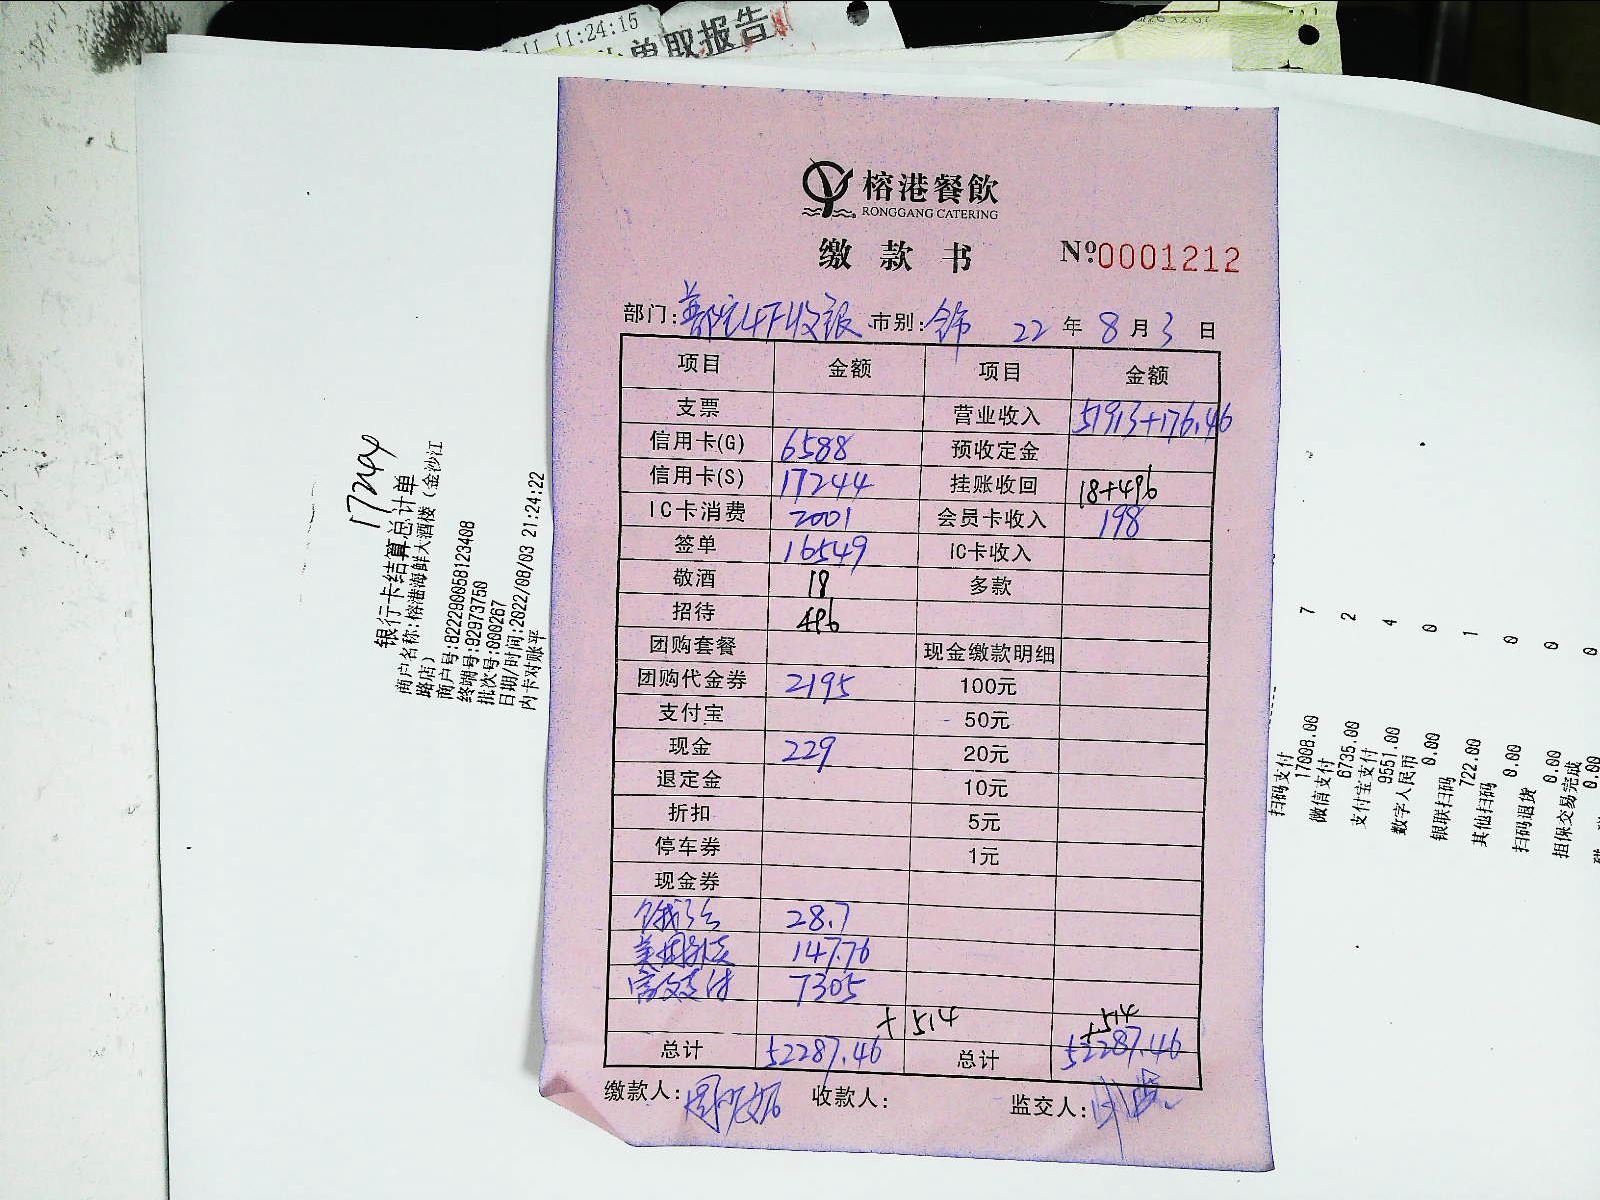 11:24:15
单取报告
榕港餐飲
RONGGANG CATERING
缴款书 Nº0001212
部门:普陀4F收银 市别:全市 22年8月3日
项目 金额 项目 金额
支票 营业收入 51913+176.46
信用卡(G) 6588 预收定金
信用卡(S) 17244 挂账收回 18+496
IC卡消费 2001 会员卡收入 198
签单 16549 IC卡收入
敬酒 18 多款
招待 496
团购套餐 现金缴款明细
团购代金券 2195 100元
支付宝 50元
现金 229 20元
退定金 10元
折扣 5元
停车券 1元
现金券
饿了么 28.7
美团外卖 147.76
高友支付 7305
+514 +514
总计 52287.46 总计 52287.46
缴款人: 收款人: 监交人:
17244
银行卡结算总计单
商户名称:榕港海鲜大酒楼(金沙江
路店)
商户号:822290058123408
终端号:92973750
批次号:000267
日期/时间:2022/08/03 21:24:22
内卡对账平
扫码支付 7
17008.00
微信支付 2
6735.00
支付宝支付 4
9551.00
数字人民币 0
0.00
银联扫码 1
722.00
其他扫码 0
0.00
扫码退货 0
0.00
担保交易完成 0
0.00